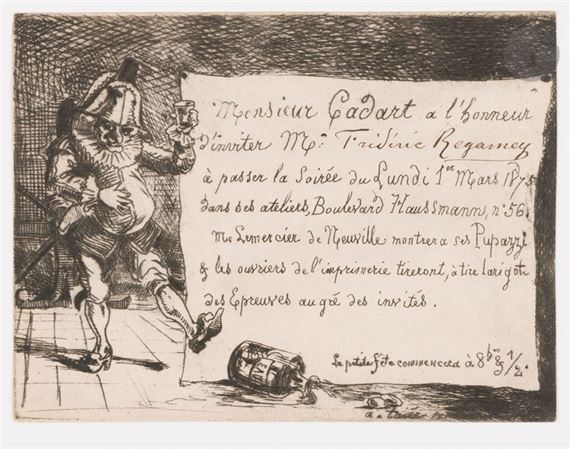 Monsieur Cadart a l'honneur
d'inviter Mr. Frédéric Regamey
à passer la Soirée du Lundi 1er Mars 1875
dans ses ateliers, Boulevard Haussmann, no 56
Mr Lemercier de Neuville montrera ses Pupazzi
& les ouvriers de l'imprimerie tireront, à tire larigot
des Epreuves au gré des invités.
La petite fête commencera à 8h es 1/2.